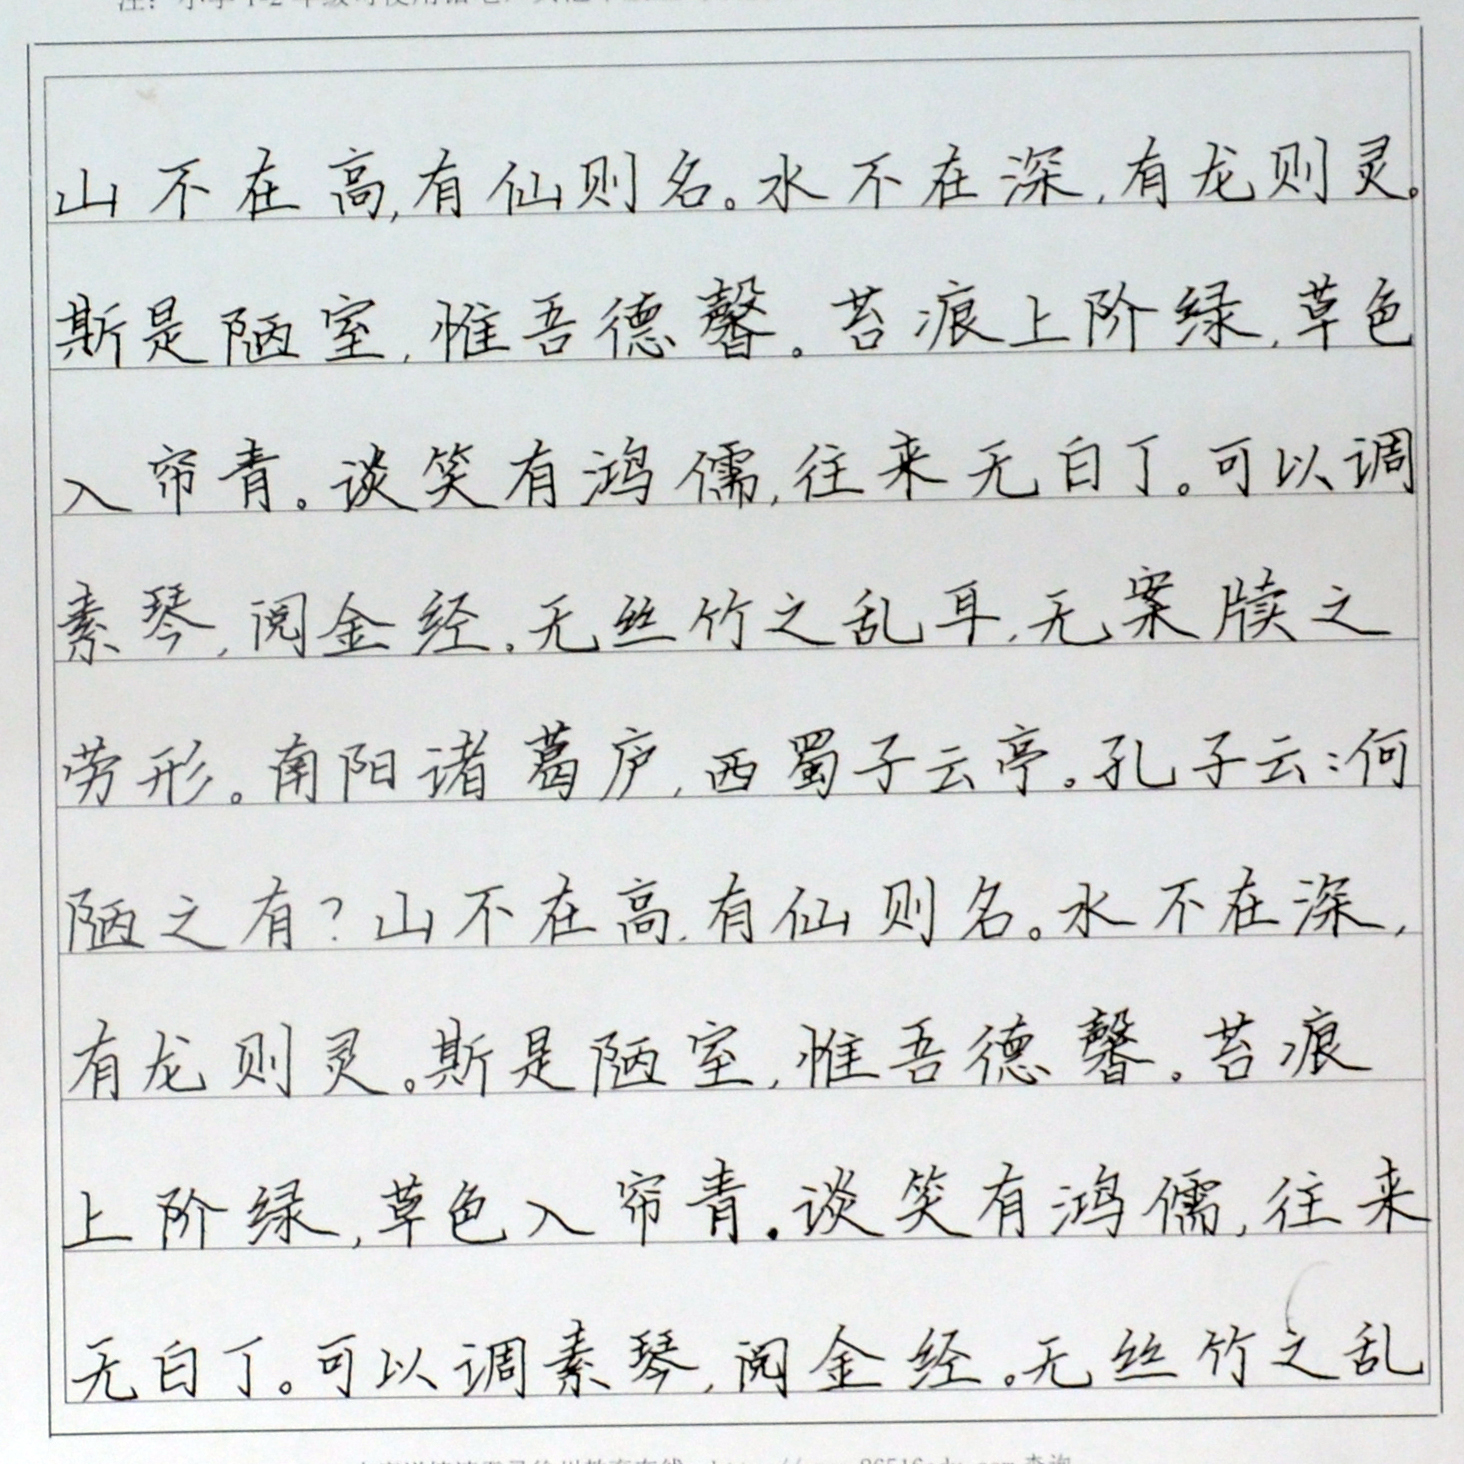 山不在高,有仙则名。水不在深,有龙则灵。
斯是陋室,惟吾德馨。苔痕上阶绿,草色
入帘青。谈笑有鸿儒,往来无白丁。可以调
素琴,阅金经。无丝竹之乱耳,无案牍之
劳形。南阳诸葛庐,西蜀子云亭。孔子云:何
陋之有?山不在高,有仙则名。水不在深,
有龙则灵。斯是陋室,惟吾德馨。苔痕
上阶绿,草色入帘青。谈笑有鸿儒,往来
无白丁。可以调素琴,阅金经。无丝竹之乱